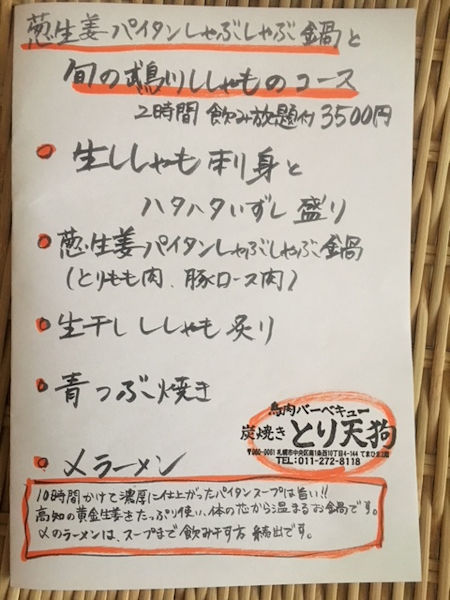 葱生姜パイタンしゃぶしゃぶ鍋と
旬の鵡川ししゃものコース
2時間 飲み放題付 3500円
生ししゃも刺身と
ハタハタいずし盛り
葱生姜パイタンしゃぶしゃぶ鍋
(とりもも肉、豚ロース肉)
生干しししゃも炙り
青つぶ焼き
〆ラーメン
鳥肉バーベキュー
炭焼き とり天狗
札幌市中央区南1条西10丁目4-144
TEL:011-272-8118
10時間かけて濃厚に仕上がったパイタンスープは旨い!!
高知の黄金生姜をたっぷり使い、体の芯から温まるお鍋です。
〆のラーメンは、スープまで飲み干す方 続出です。